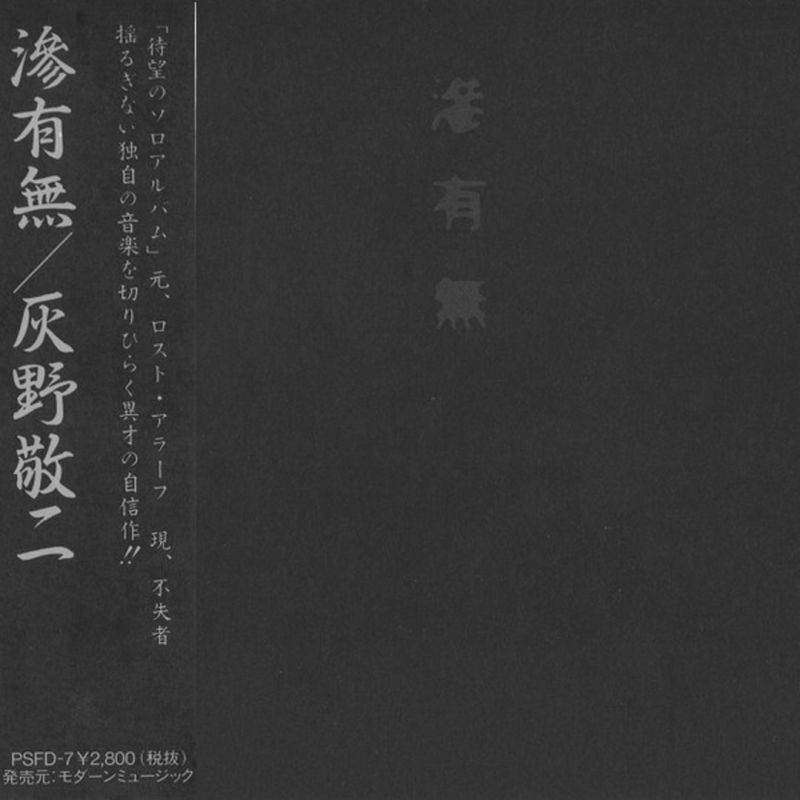 滲有無
「待望のソロアルバム」元、ロスト・アラーフ　現、不失者
揺るぎない独自の音楽を切りひらく異才の自信作!!
滲有無／灰野敬二
PSFD-7 ¥2,800（税抜）
発売元：モダーンミュージック